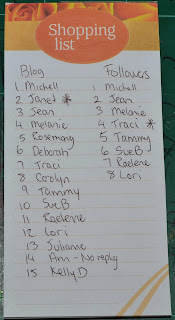 Shopping
list
Blog
1 Michell
2 Janet *
3 Jean
4 Melanie
5 Rosemary
6 Deborah
7 Traci
8 Carolyn
9 Tammy
10 Sue B
11 Raelene
12 Lori
13 Julianne
14 Ann - No reply
15 Kelly D
Followers
1 Michell
2 Jean
3 Melanie
4 Traci *
5 Tammy
6 Sue B
7 Raelene
8 Lori